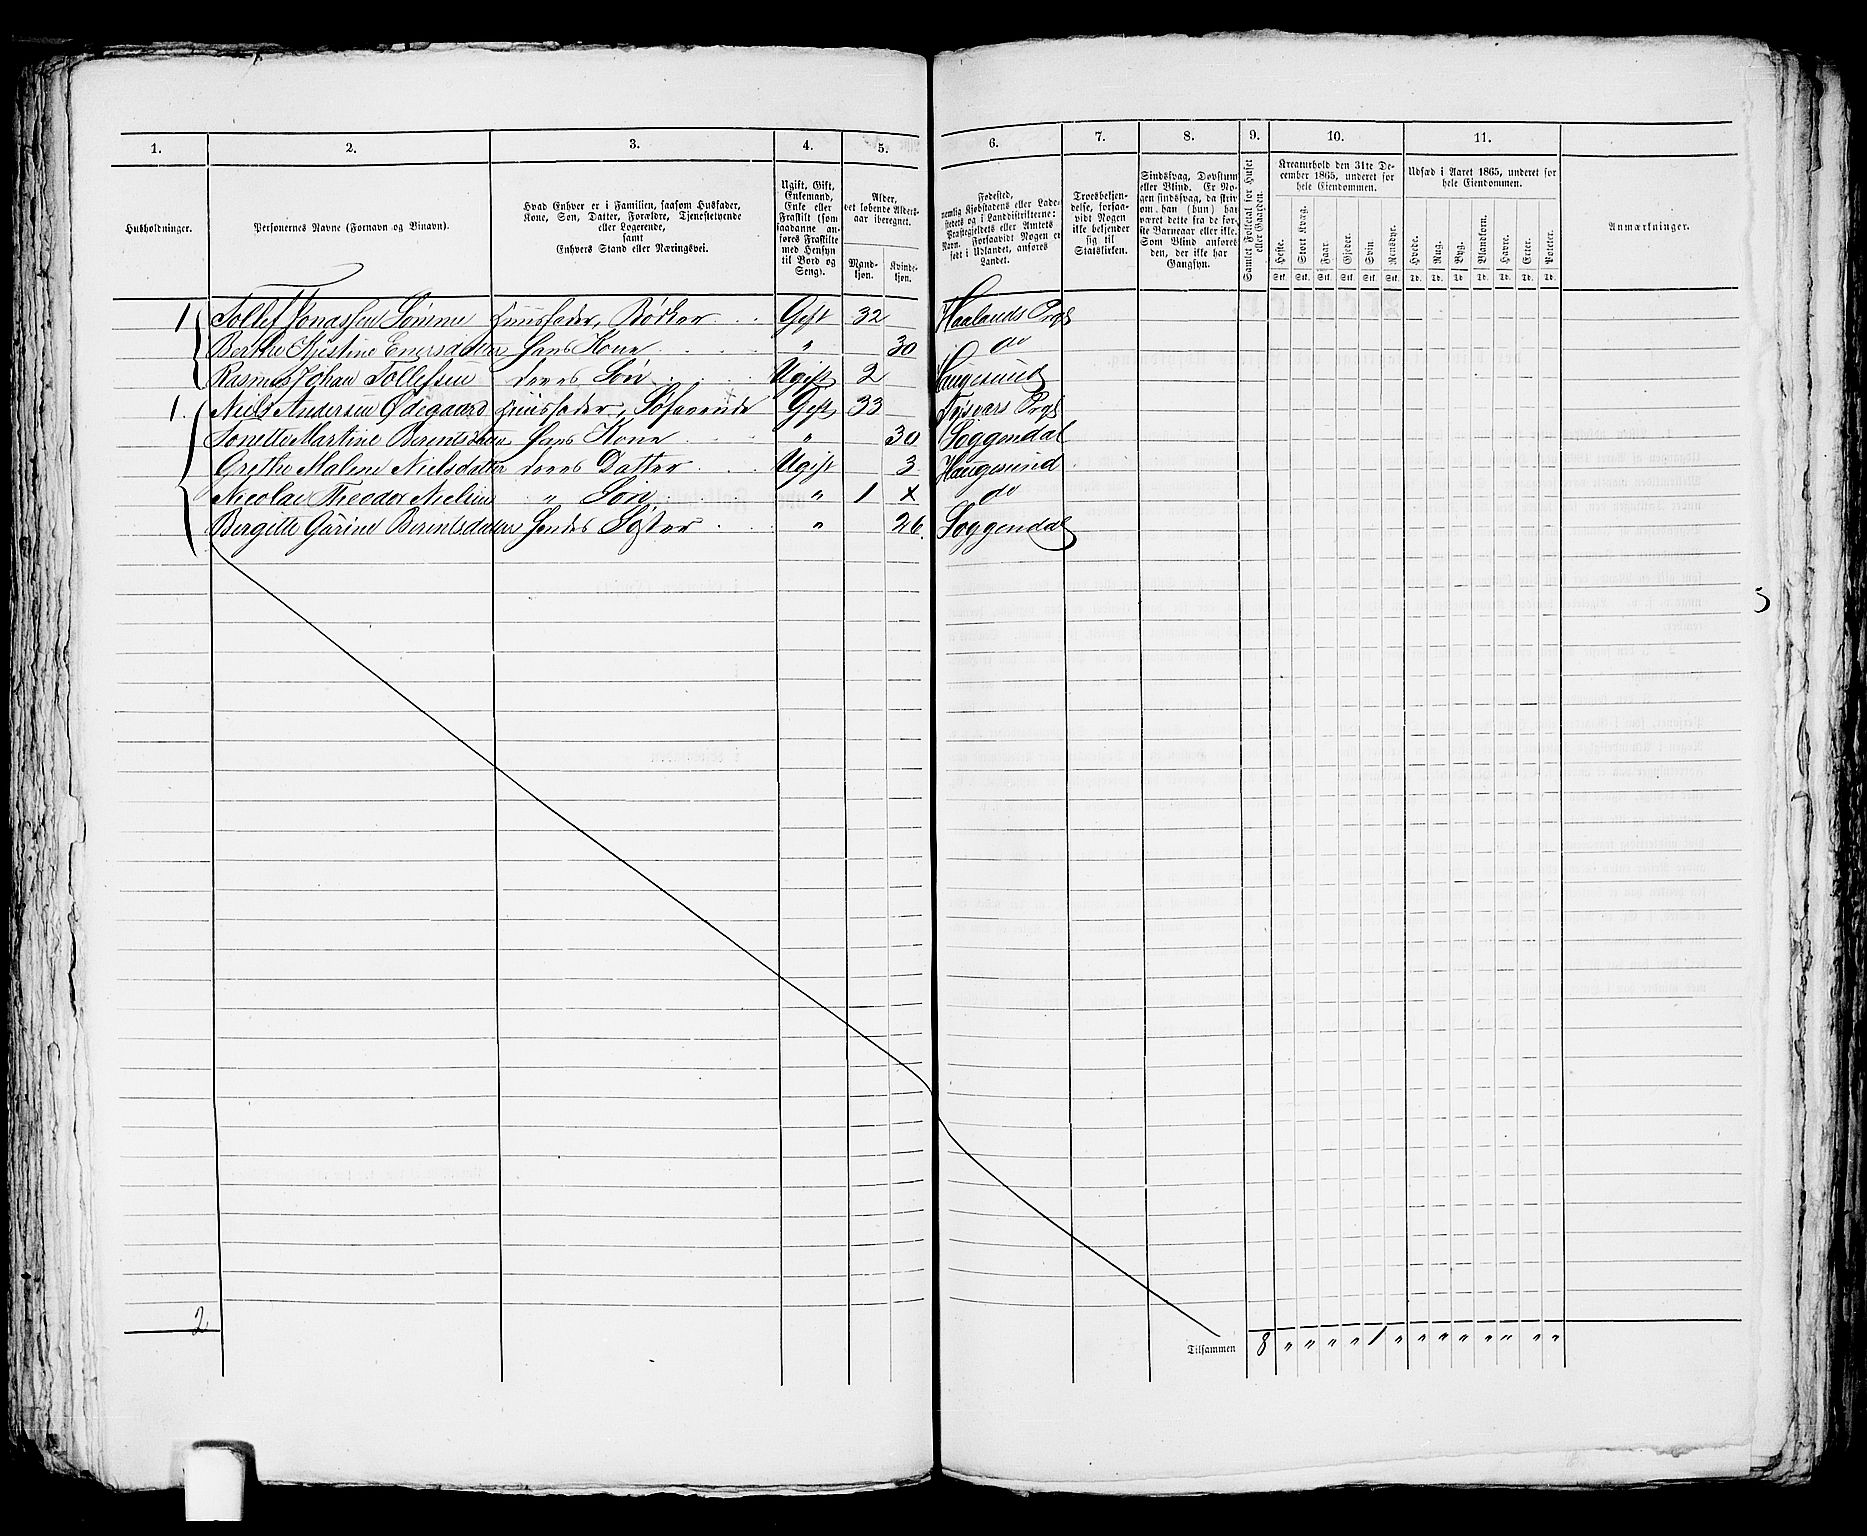 1. 2. 3. 4. 5. 6. 7. 8. 9. 10. 11.
Husholdninger.
Personernes Navne (Fornavn og Tilnavn).
Hvad Enhver er i Familien, saasom Husfader,
Kone, Søn, Datter, Forældre, Tjenestetyende
eller Logerende,
samt
Enhvers Stand eller Næringsvei.
Ugift, Gift,
Enkemand,
Enke eller
Fraskilt (som
saadanne an-
føres Fraskilte
med Hensyn
til Bord og
Seng).
Alder,
det løbende Alders-
aar iberegnet.
Mand-
kjøn.
Kvinde-
kjøn.
Fødested,
nemlig Kjøbstadens eller Lade-
stedets og i Landdistrikterne:
Præstegjeldets eller Amtets
Navn. Forsaavidt Nogen er
født i Udlandet, anføres
Landet.
Troesbekjen-
delse, forsaa-
vidt Nogen
ikke bekjender
sig til
Statskirken.
Sindssvag, Døvstum
eller Blind. Er No-
gen sindssvag, da skriv
om han (hun) har
været dette fra de før-
ste Barneaar eller ikke.
Som Blind anføres
den, der ikke har
Gangsyn.
Samlet Folketal for Huset
eller Gaarden.
Kreaturhold den 31te De-
cember 1865, underet for
hele Eiendommen.
Heste. Stort Kvæg. Faar. Gjeder. Svin. Rensdyr.
Stk. Stk. Stk. Stk. Stk. Stk.
Udsæd i Aaret 1865, underet for
hele Eiendommen.
Hvede. Rug. Byg. Blandkorn. Havre. Erter. Poteter.
Td. Td. Td. Td. Td. Td. Td.
Anmærkninger.
1 Tollef Jonassen Sømme Huusfader, Bødker Gift 32 Haalands Prgj
Berthe Kjistine Enersdatter Hans Kone " 30 do
Rasmus Johan Tollefsen deres Søn Ugift 2 Haugesund
1. Niels Andersen Ødegaard Huusfader, Søfarende Gift 33 Tysvær Prgj
Tonette Martine Berentsdatter Hans Kone " 30 Soggendal
Grethe Malene Nielsdatter deres Datter Ugift 3 Haugesund
Nicolai Theodor Nielsen " Søn " 1 x do
Bergitte Gurine Berentsdatter Hendes Søster " 26 Soggendal
5
2
Tilsammen 8 " " " " 1 " " " " " " " "